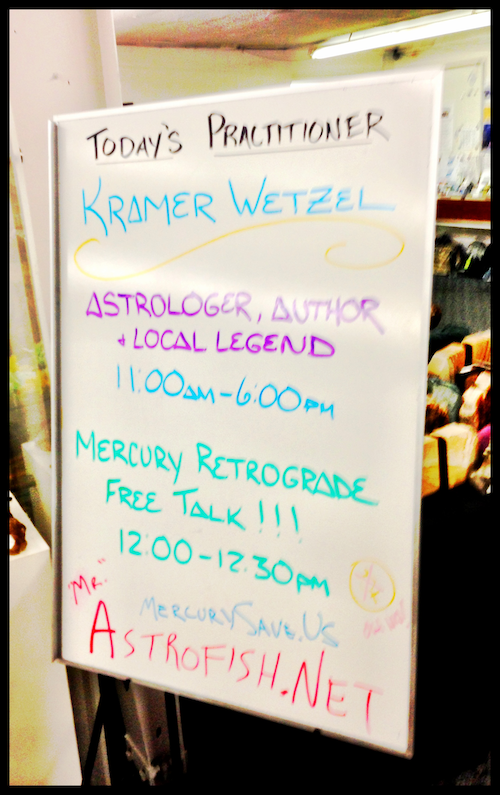 TODAY'S PRACTITIONER
KRAMER WETZEL
ASTROLOGER, AUTHOR
+ LOCAL LEGEND
11:00AM-6:00PM
MERCURY RETROGRADE
FREE TALK!!!
12:00-12:30PM
"MR."
MERCURYSAVE.US
ASTROFISH.NET